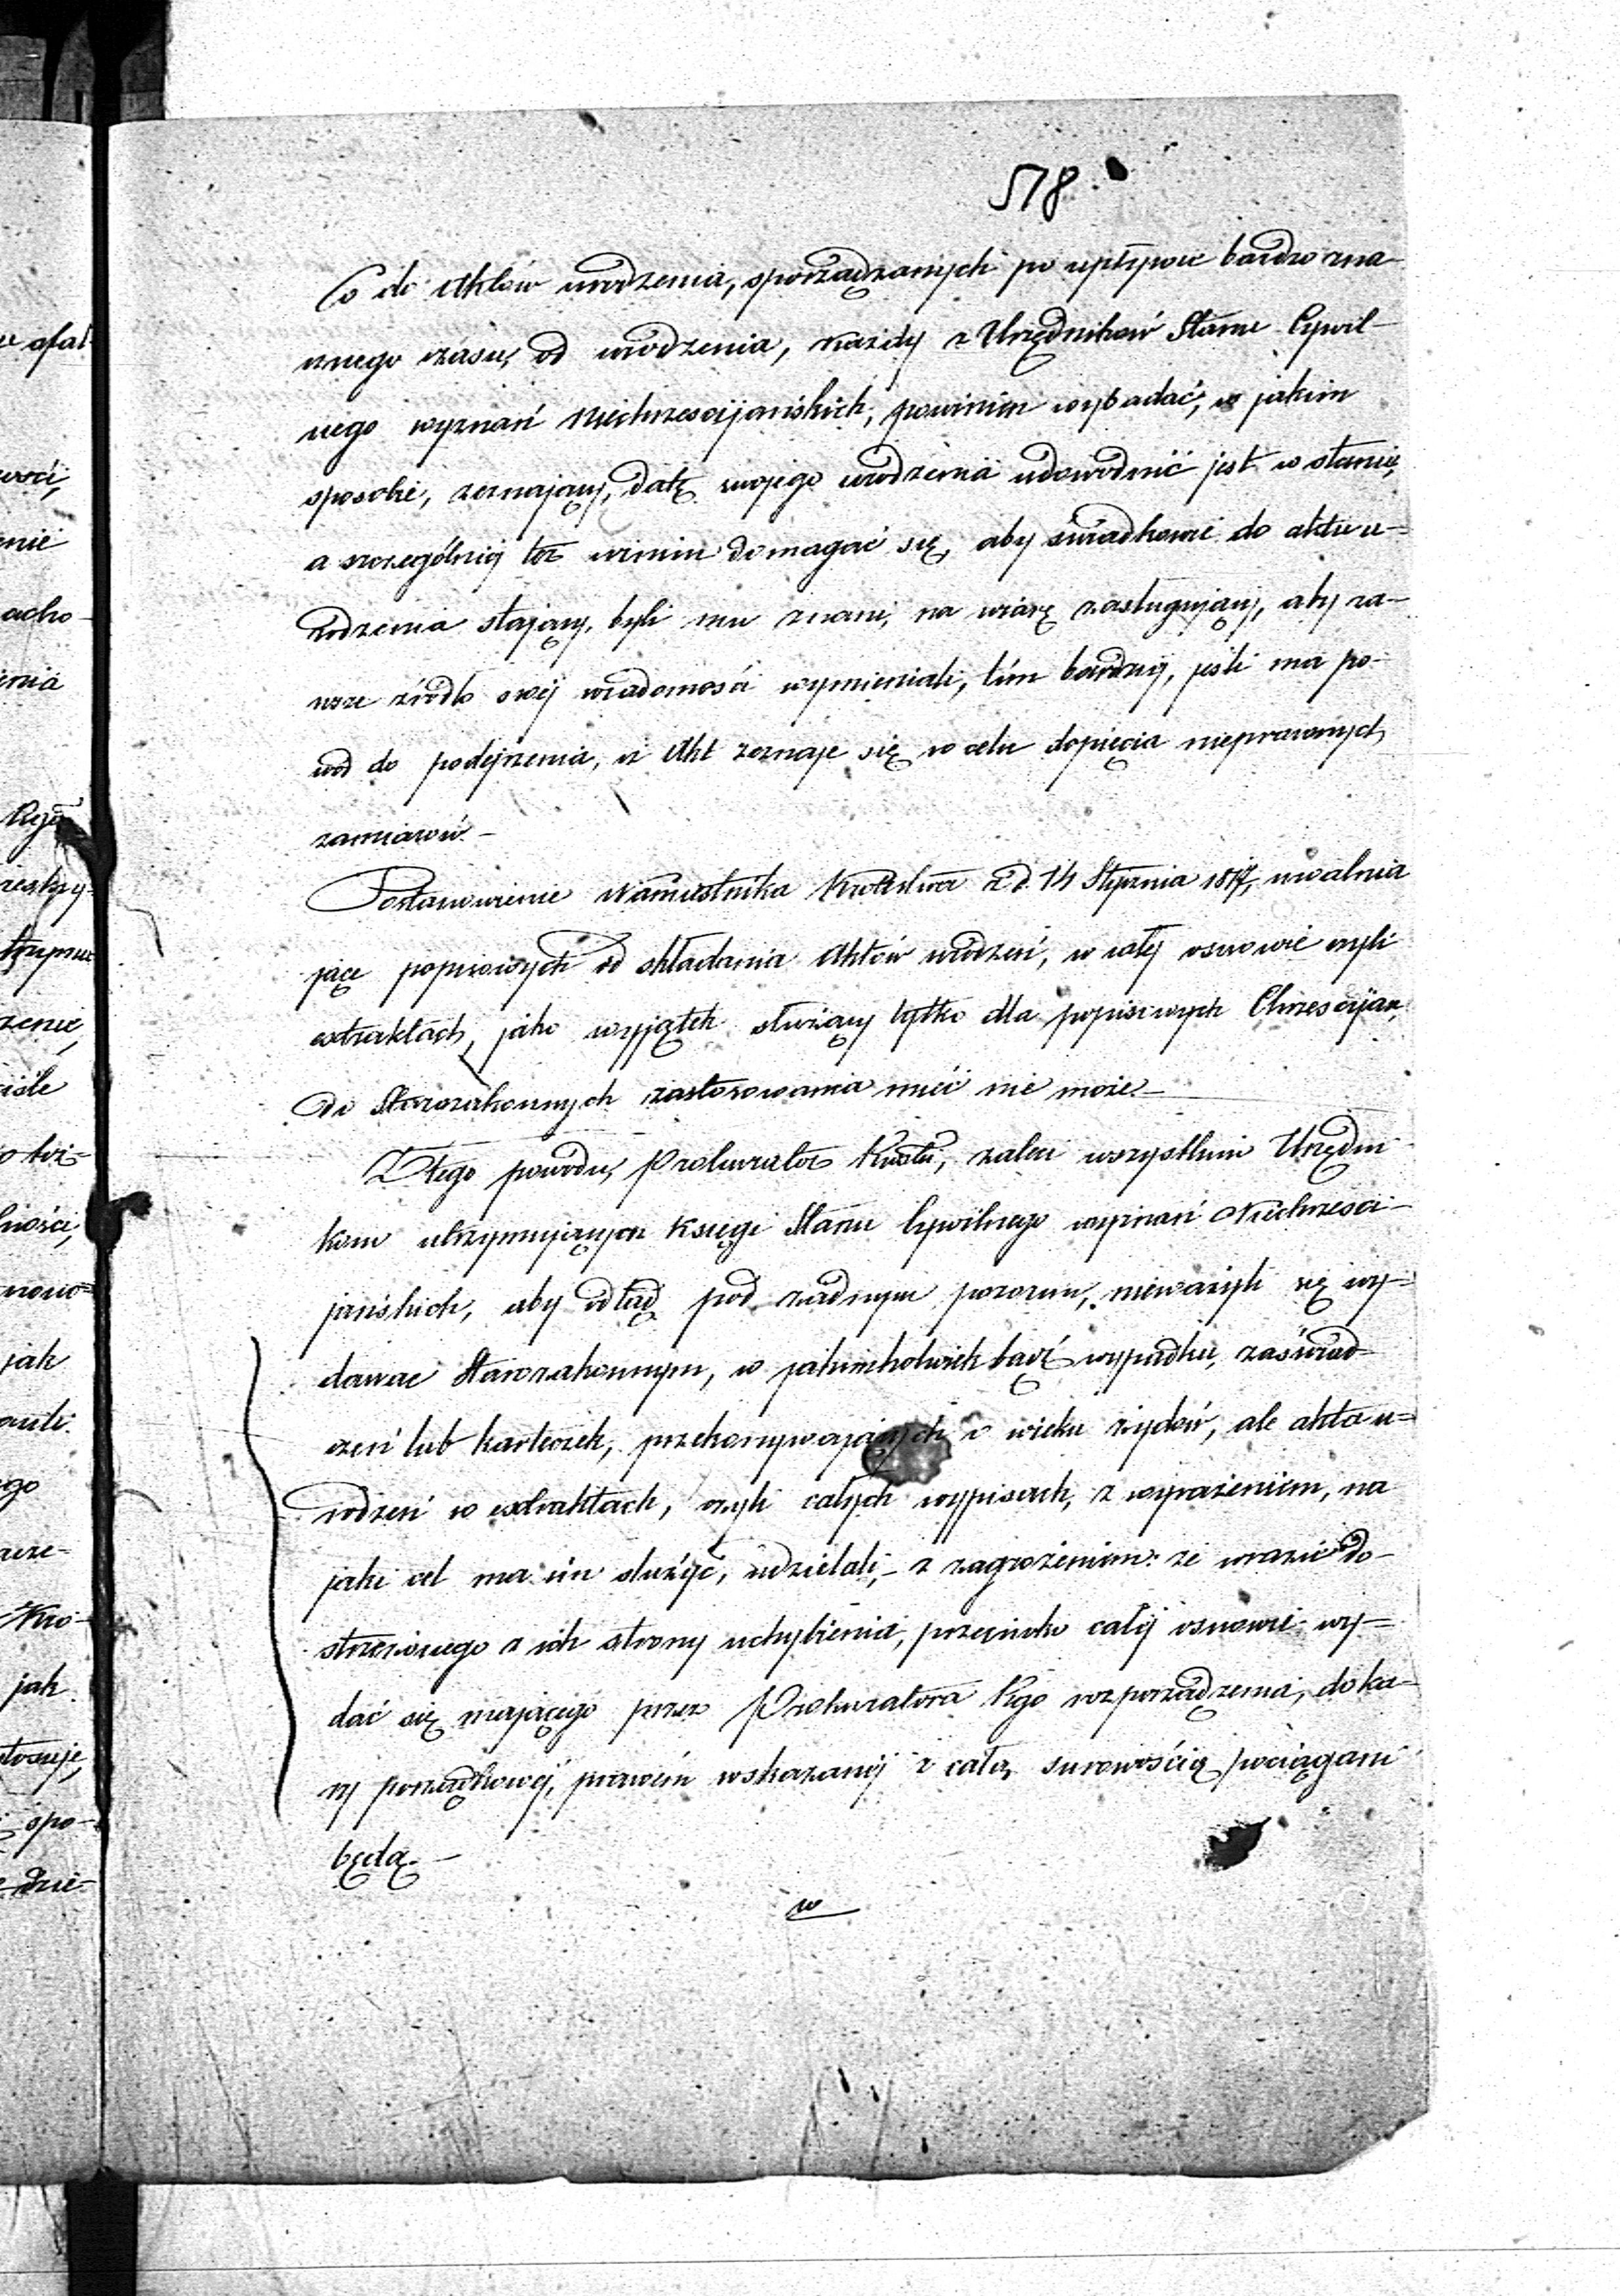 578
Co do Aktów urodzenia, sporządzanych po upływie bardzo zna-
cznego czasu, od urodzenia, każdy z Urzędników Stanu Cywil-
nego wyznań Niechrześcijańskich, powinien wybadać, w jakim
sposobie, zeznający, datę swojego urodzenia udowodnić jest w stanie,
a szczególniej też winien domagać się, aby świadkowie do aktu u-
rodzenia stający, byli mu znani, na wiarę zasługujący, aby za-
wsze źródło swéj wiadomości wymieniali, tém bardziéj, jeśli ma po-
wód do podejrzenia, iż Akt zeznaje się w celu dopięcia nieprawnych
zamiarów. -
Postanowienie Namiestnika Królestwa z d. 14 Stycznia 1817, uwalnia-
jące popisowych od składania Aktów urodzeń, w całej osnowie czyli
extraktach, jako wyjątek służący tylko dla popisowych Chrześcijan,
do Starozakonnych zastosowania mieć nie może. -
Z tego powodu, Prokurator Królu, zaleci wszystkim Urzędni-
kom utrzymującym Księgi Stanu Cywilnego wyznań Niechrześci-
jańskich, aby odtąd pod żadnym pozorem, nieważyli się wy-
dawać Starozakonnym, w jakimkolwiek bądź wypadku, zaświad-
czeń lub karteczek, przekonywających o wieku żydów, ale akta u-
rodzeń w extraktach, czyli całych wypisach, z wyrażeniem, na
jaki cel ma im służyć, udzielali, - z zagrożeniem: że wrazie do-
strzeżonego z ich strony uchybienia, przeciwko całéj osnowie wy-
dać się mającego przez Prokuratora Kgo rozporządzenia, do ka-
ry porządkowéj, prawem wskazanéj z całą surowością pociągani
będą. -
w